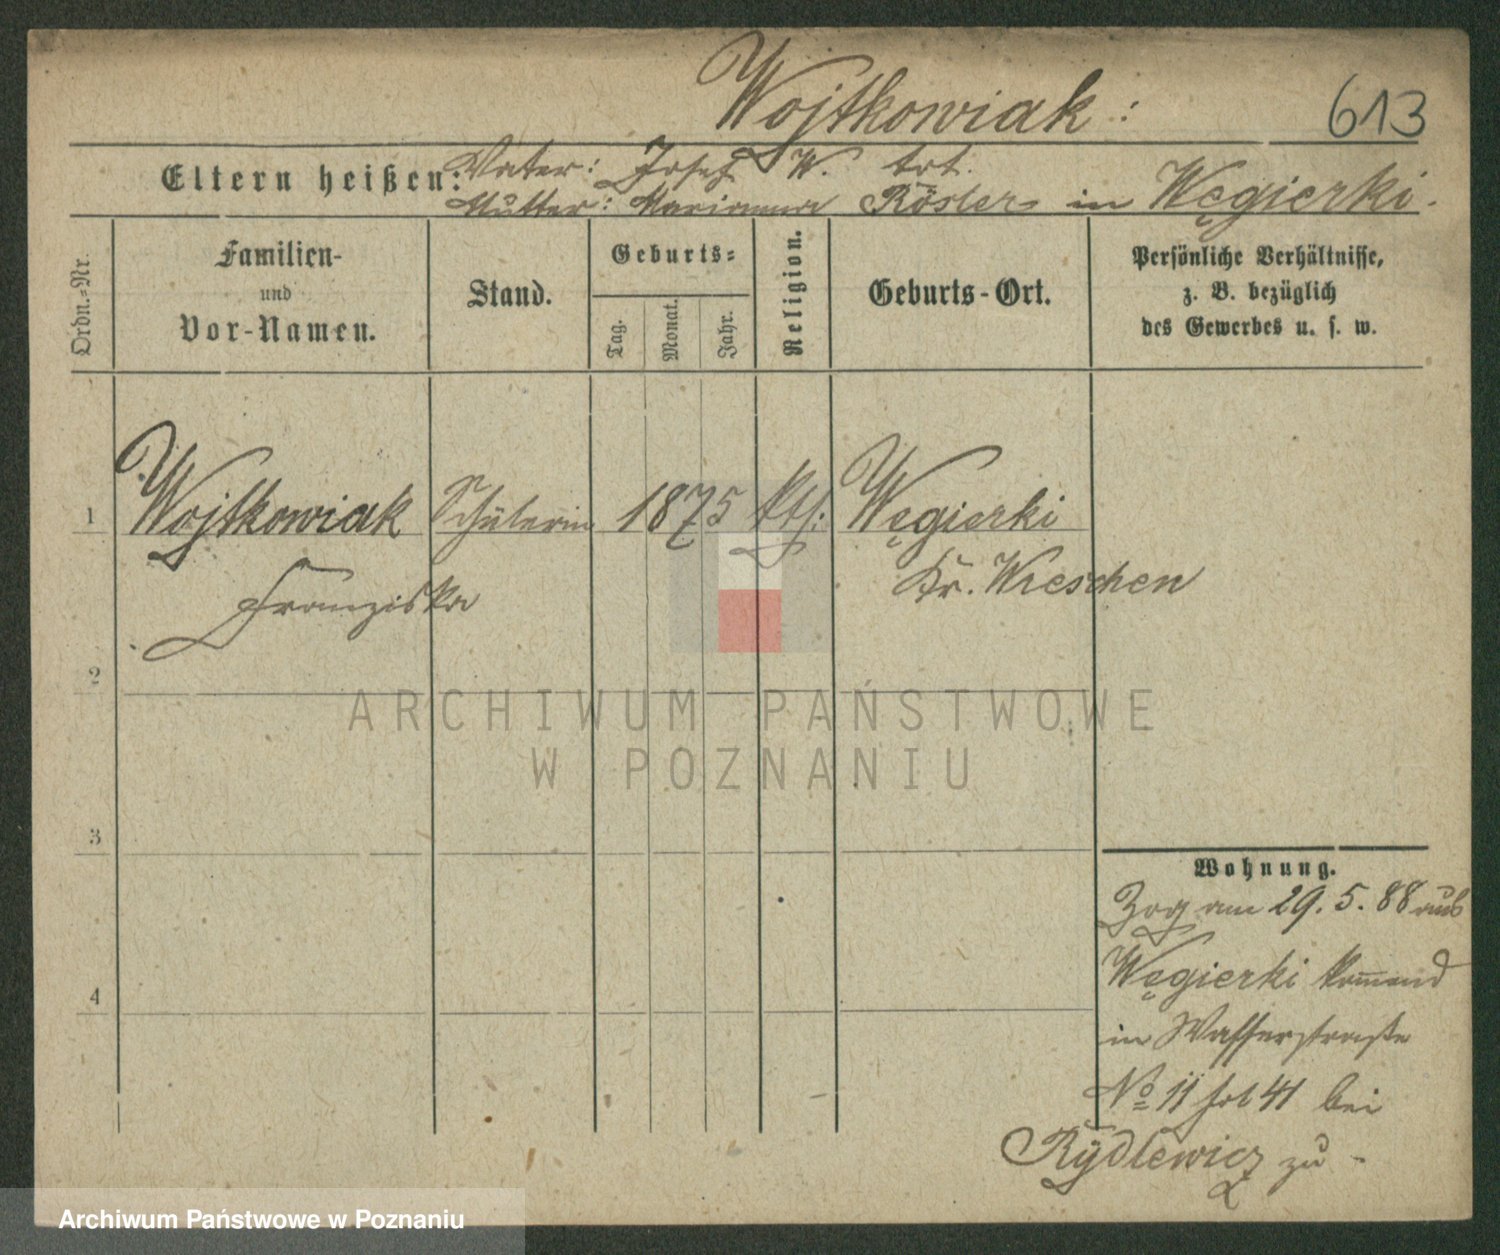 Wojtkowiak:
613
Eltern heißen:
Vater: Josef W. tot.
Mutter: Marianna Rösler in Węgierki.
Ordn.-Nr.
Familien-
und
Vor-Namen.
Stand.
Geburts-
Tag.
Monat.
Jahr.
Religion.
Geburts-Ort.
Persönliche Verhältnisse,
z. B. bezüglich
des Gewerbes u. s. w.
1 Wojtkowiak Schülerin 1875 kth: Węgierki
Franziska Kr. Wreschen
2
ARCHIWUM PAŃSTWOWE
W POZNANIU
3
Wohnung.
Zog am 29. 5. 88 aus
Węgierki komend
4
in Wasserstraße
No 11 bei
Rydlewicz zu -
Archiwum Państwowe w Poznaniu